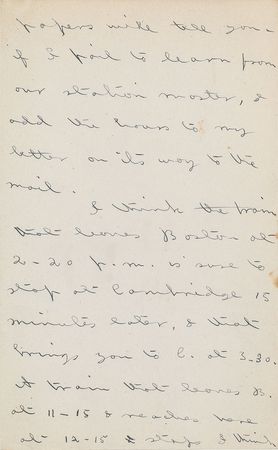 papers will tell you -
if I fail to learn from
our station master, &
add the hours to my
letter on its way to the
mail.
I think the train
that leaves Boston at
2-20 p.m. is sure to
stop at Cambridge 15
minutes later, & that
brings you to C. at 3-30.
A train that leaves B.
at 11-15 & reaches here
at 12-15 & stops I think